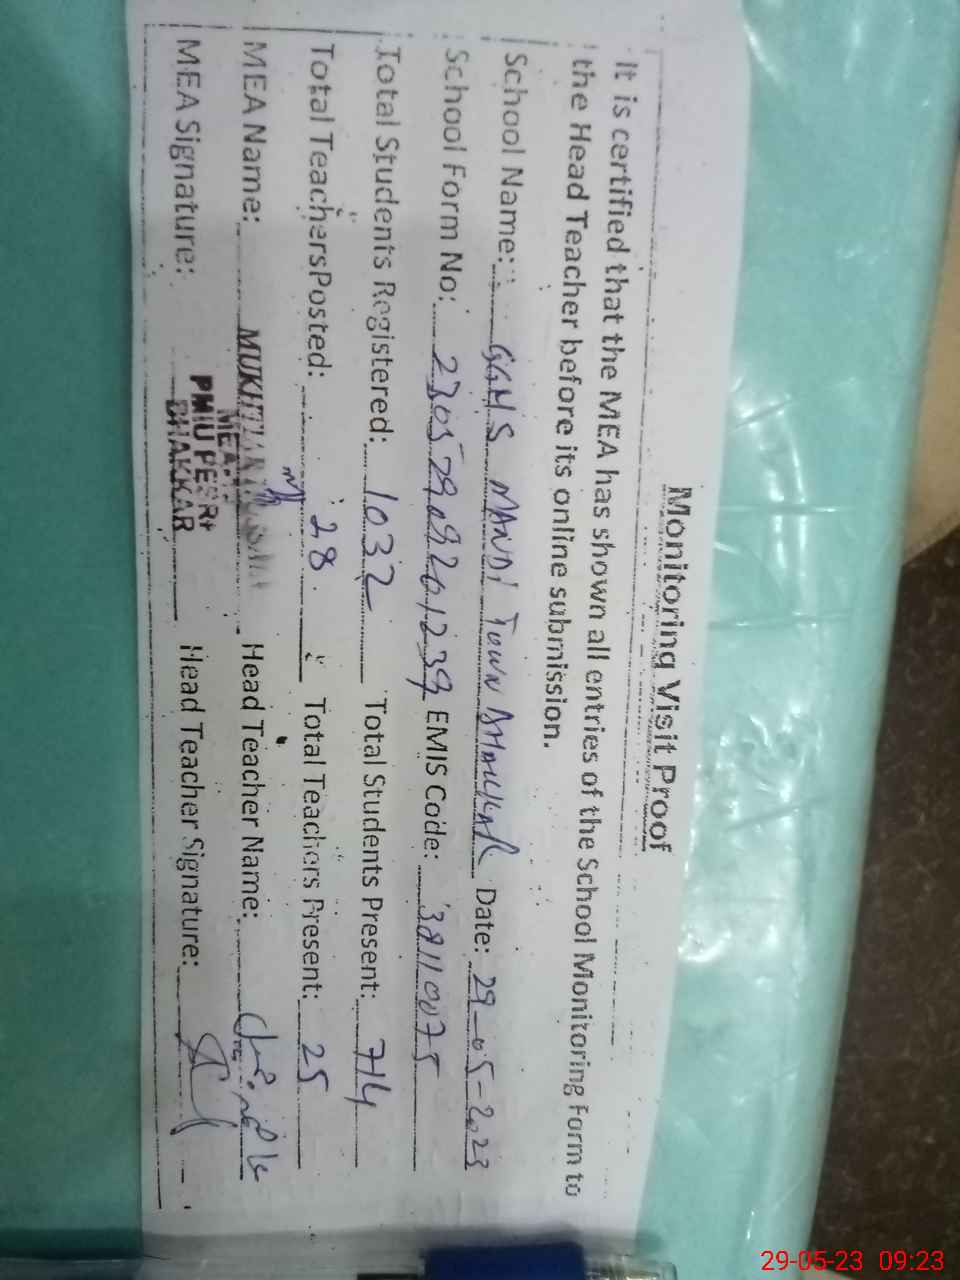 Monitoring Visit Proof
It is certified that the MEA has shown all entries of the School Monitoring Form to
the Head Teacher before its online submission.
School Name: GGHS MANDI TOWN BHAKKAR Date: 29-05-2023
School Form No: 23052909201239 EMIS Code: 38110075
Total Students Registered: 1032 Total Students Present: 714
Total Teachers Posted: 28 Total Teachers Present: 25
MEA Name: MUKHTIAR Head Teacher Name:
MEA
MEA Signature: PMIU PESRP Head Teacher Signature:
BHAKKAR
29-05-23 09:23